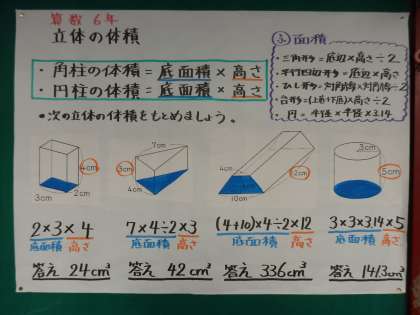 算数6年
立体の体積
・角柱の体積=底面積×高さ
・円柱の体積=底面積×高さ
ふ 面積
・三角形=底辺×高さ÷2
・平行四辺形=底辺×高さ
・ひし形=対角線×対角線÷2
・台形=(上底+下底)×高さ÷2
・円=半径×半径×3.14
●次の立体の体積をもとめましょう。
4cm
2cm
3cm
7cm
3cm
4cm
4cm
4cm
12cm
10cm
3cm
5cm
2×3×4
底面積 高さ
答え 24cm³
7×4÷2×3
底面積 高さ
答え 42cm³
(4+10)×4÷2×12
底面積 高さ
答え 336cm³
3×3×3.14×5
底面積 高さ
答え 141.3cm³